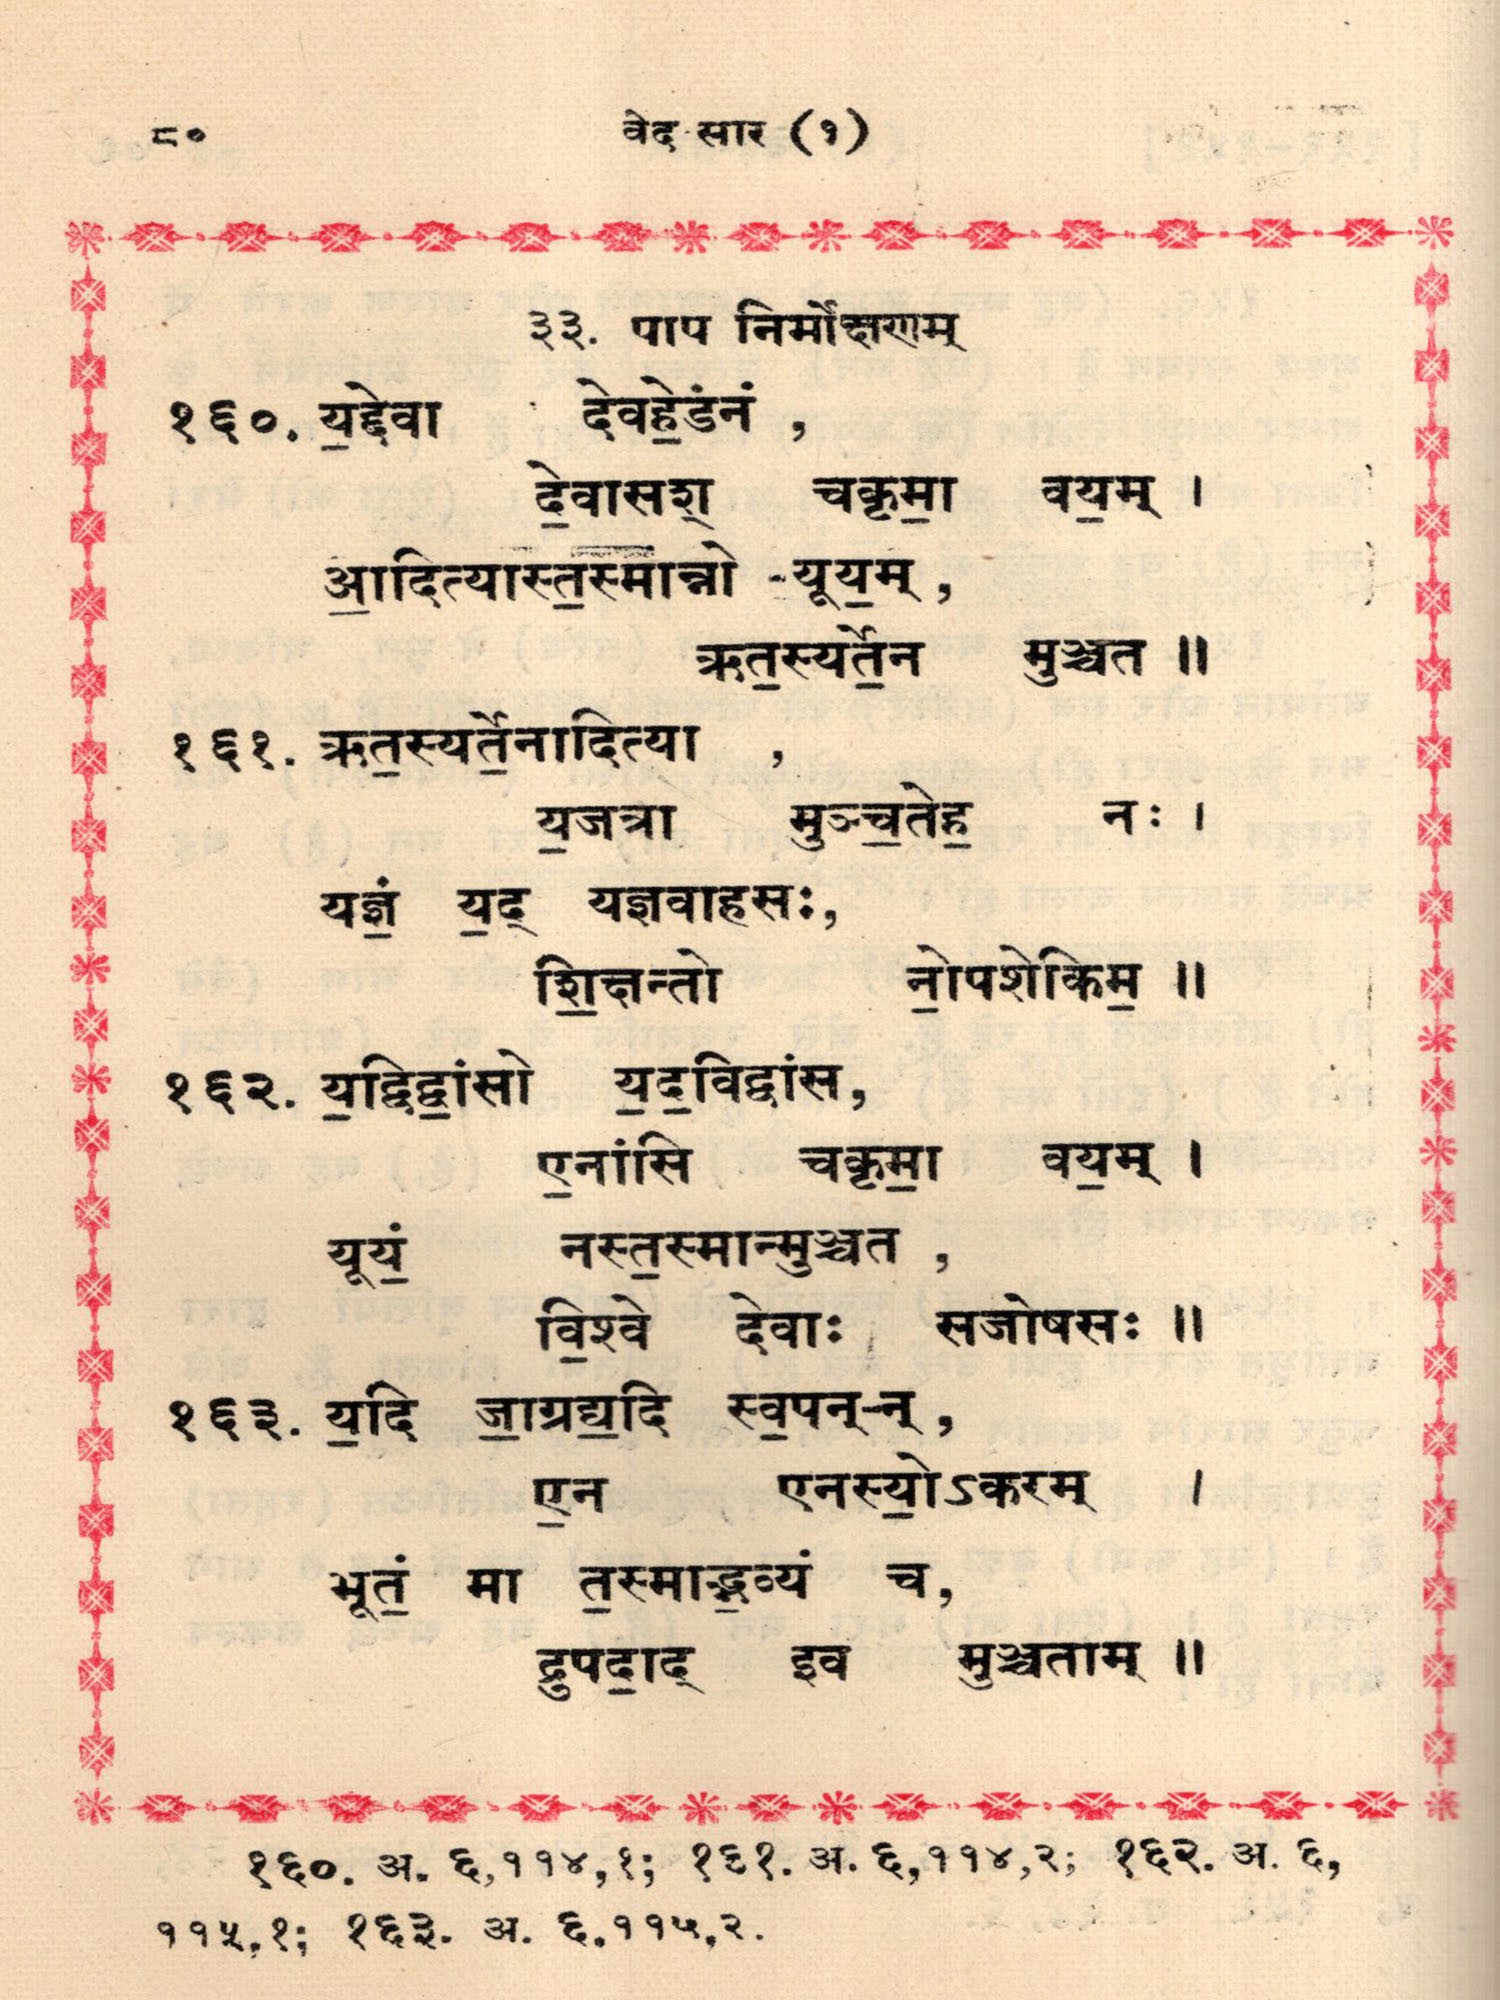 ८०
वेद सार (१)
३३. पाप निर्मोक्षणम्
१६०. य॒द्देवा देवहे॒डंनं ,
दे॒वासश् चकृमा॒ वय॒म् ।
आ॒दित्यास्त॒स्मान्नो यूय॒म् ,
ऋत॒स्यर्ते॒न मुञ्चत ॥
१६१. ऋत॒स्यर्ते॒नादित्या ,
य॒जत्रा मुञ्च॒तेह॒ नः ।
यज्ञं॒ य॒द् यज्ञवाहसः,
शि॒क्षन्तो नो॒पशेकिम॒ ॥
१६२. य॒द्विद्वां॒सो य॒द॒विद्वांस,
ए॒नांसि चकृमा॒ वय॒म् ।
यूयं॒ नस्त॒स्मान्मुञ्चत ,
वि॒श्वे देवाः सजोषसः ॥
१६३. य॒दि जा॒ग्रद्य॒दि स्व॒पन्-न् ,
ए॒न एनस्यो॒ऽकरम् ।
भूतं॒ मा त॒स्माद्भ॒व्यं च,
द्रुपदा॒द् इव मुञ्चताम् ॥
१६०. अ. ६,११४,१; १६१. अ. ६,११४,२; १६२. अ. ६,
११५,१; १६३. अ. ६,११५,२.